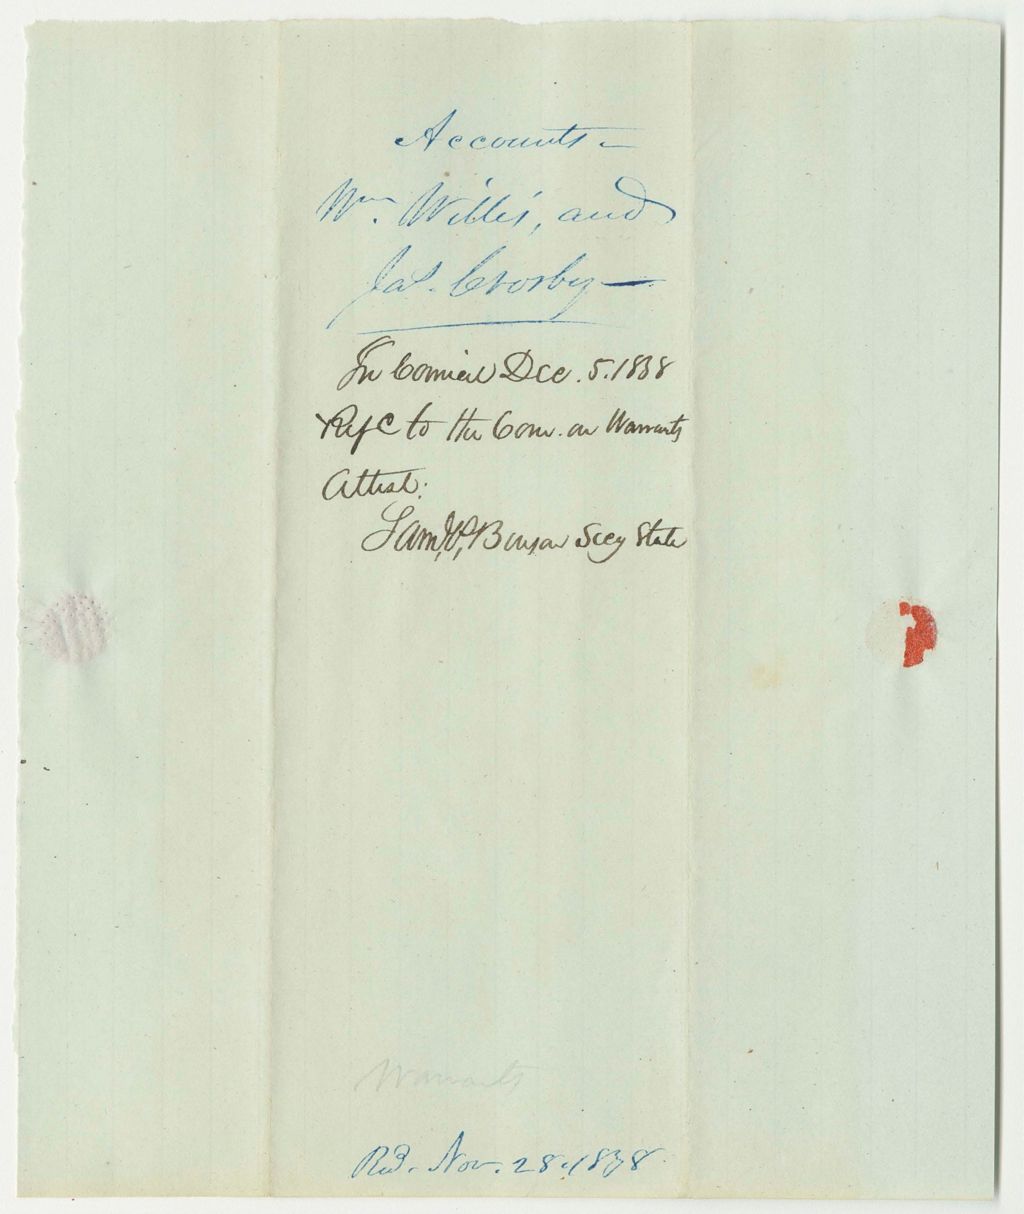 Accounts—
Wm. Willis, and
Jas. Crosby—
In Council Dec. 5. 1838
Refd to the Com. on Warrants
Attest:
Saml. P. Benson Secy State
Warrants
Rcd. Nov. 28. 1838